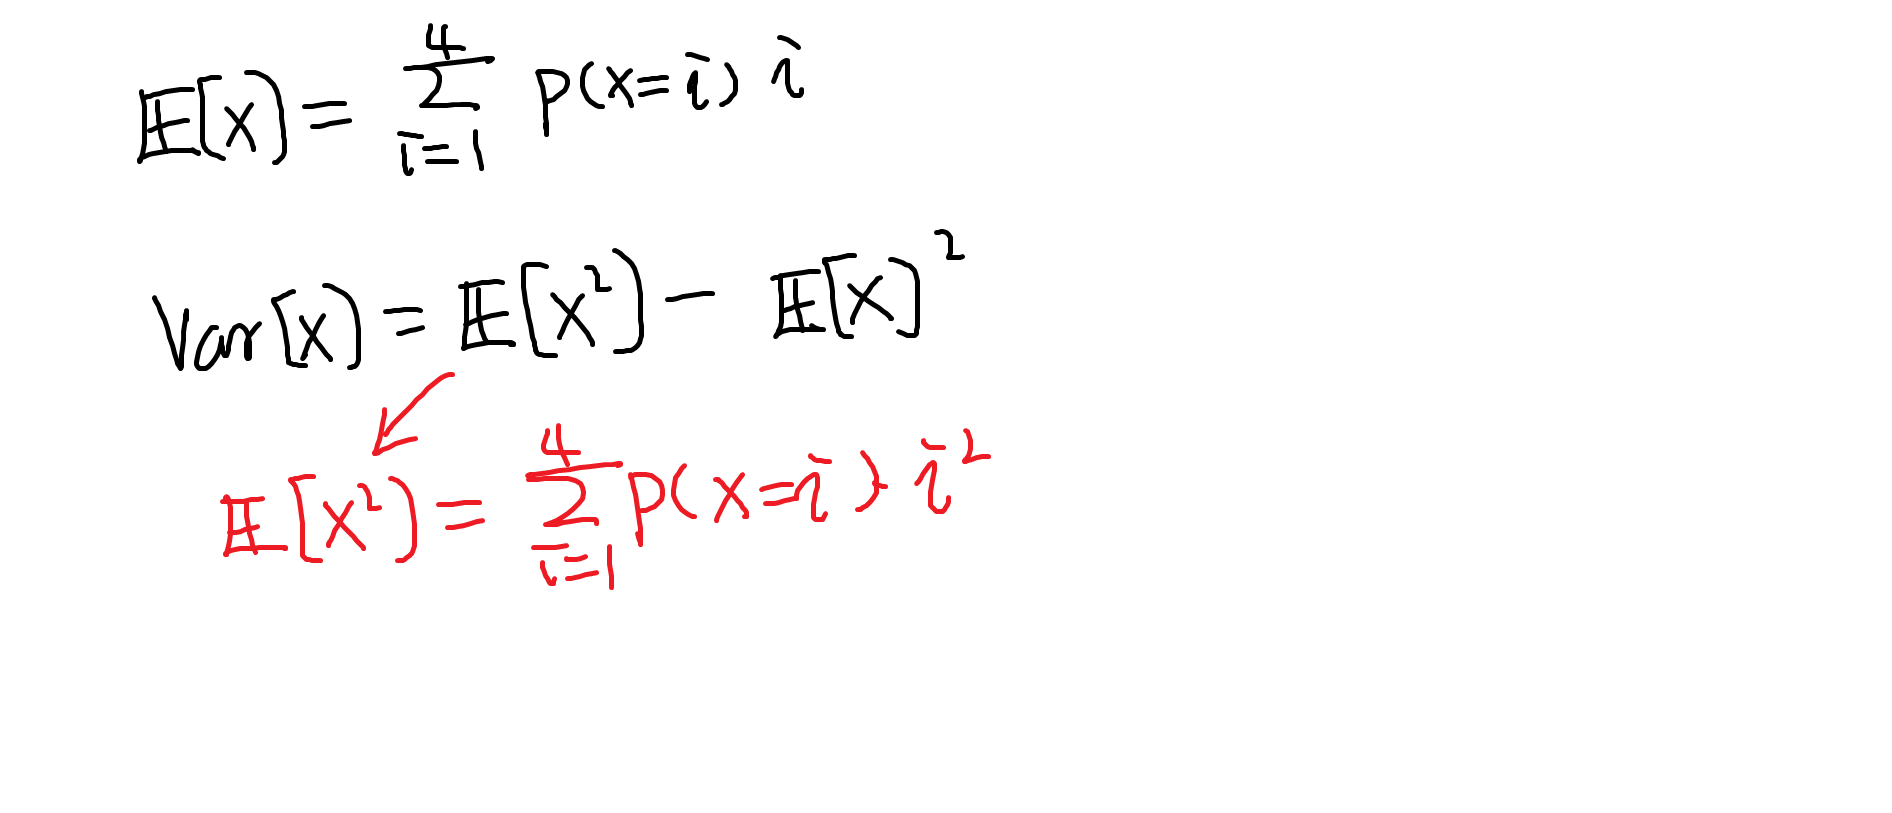 𝔼[x] = ∑_{i=1}^{4} p(x=i) i
Var[x] = 𝔼[x²] − 𝔼[x]²
𝔼[x²] = ∑_{i=1}^{4} p(x=i) i²